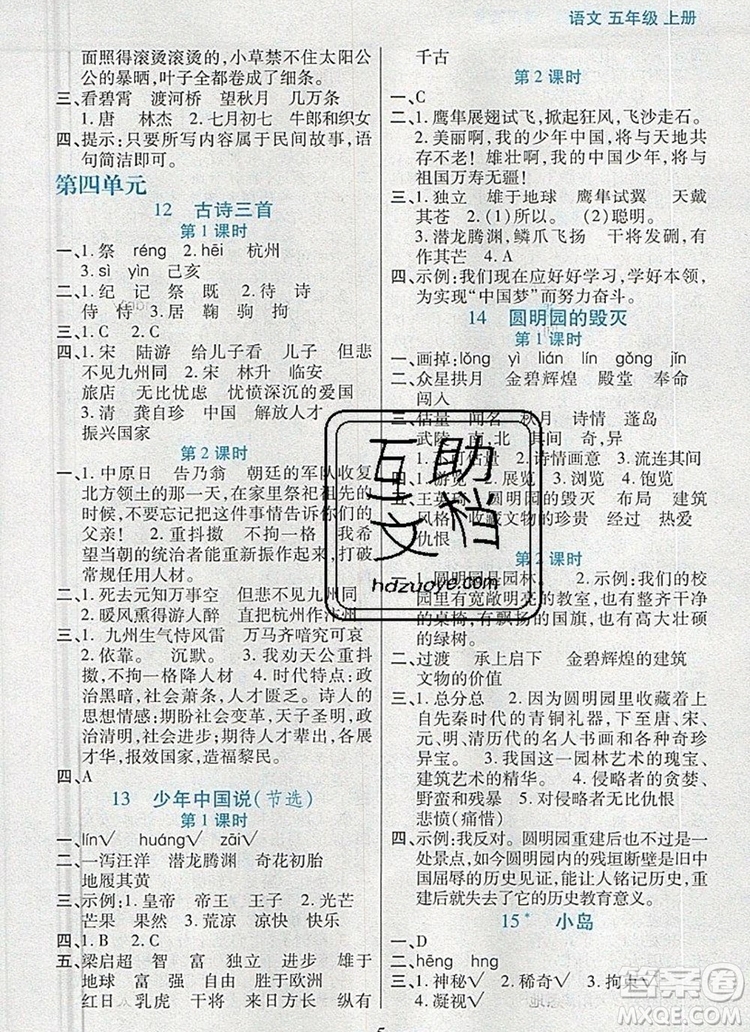 语文 五年级 上册
面照得滚烫滚烫的，小草禁不住太阳公
公的暴晒，叶子全都卷成了细条。
三、看碧霄　渡河桥　望秋月　几万条
1.唐　林杰　2.七月初七　牛郎和织女
四、提示：只要所写内容属于民间故事，语
句简洁即可。
第四单元
12　古诗三首
第1课时
一、1.祭　réng　2.hēi　杭州
3.sì　yìn　己亥
二、1.纪　记　祭　既　2.待　诗
侍　恃　3.居　鞠　驹　拘
三、1.C　2.C
四、1.宋　陆游　给儿子看　儿子　但悲
不见九州同　2.宋　林升　临安
旅店　无比忧虑　忧愤深沉的爱国
3.清　龚自珍　中国　解放人才
振兴国家
第2课时
一、1.中原日　告乃翁　朝廷的军队收复
北方领土的那一天，在家里祭祀祖先的
时候，不要忘记把这件事情告诉你们的
父亲！　2.重抖擞　不拘一格　我
希望当朝的统治者能重新振作起来，不
拘泥一定规格任用人材。
二、1.死去元知万事空　但悲不见九州同
2.暖风熏得游人醉　直把杭州作汴州
三、1.九州生气恃风雷　万马齐喑究可哀
2.依靠。　沉默。　3.我劝天公重抖
擞，不拘一格降人材　4.时代特点：政
治黑暗，社会萧条，人才匮乏。诗人的
思想感情：期盼社会变革，天子圣明，政
治清明，社会进步；期盼有更多的治国
人才，报效国家，造福黎民。
四、A
13　少年中国说（节选）
第1课时
一、lín√　huáng√　zāi√
二、一泻汪洋　潜龙腾渊　奇花初胎
地履其黄
三、示例：1.皇帝　帝王　2.光芒
芒果　果然　3.荒凉　凉快　快乐
四、1.B　2.C
五、梁启超　智　富　独立　进步　雄于
地球　少年　中国　胜于欧洲
红日　乳虎　干将　来日方长　纵有
千古
第2课时
一、C
二、1.鹰隼展翅试飞，掀起狂风，飞沙走石。
2.美丽啊，我的少年中国，将与天地共
存不老！　雄壮啊，我的中国少年，将与
祖国万寿无疆！
三、1.独立　雄于地球　鹰隼试翼　天戴
其苍　2.(1)所以。　(2)聪明。
3.潜龙腾渊，鳞爪飞扬　干将发硎，有
作其芒　4.A
四、示例：我们现在应好好学习，学好本领，
为实现“中国梦”而努力奋斗。
14　圆明园的毁灭
第1课时
一、画掉：lǒng　yì　lián　lín　gǒng　jīn
二、众星拱月　金碧辉煌　殿堂　奉命
闯入
三、估量　闻名　秋月　诗情　蓬岛
武陵　南，北　其间　奇，异
1.不可估量　2.诗情画意　3.流连其间
四、1.游览　2.展览　3.浏览　4.饱览
五、王英琦　圆明园的毁灭　布局　建筑
风格　收藏文物的珍贵　经过　热爱
仇恨
第2课时
一、圆明园是园林。　示例：我们的校
园里有宽敞明亮的教室，有整齐干净
的桌椅，有飘扬的国旗，有高大壮硕
的绿树。
二、过渡　承上启下　金碧辉煌的建筑
文物的价值
三、1.总分总　2.因为圆明园里收藏着上
自先秦时代的青铜礼器，下至唐、宋、
元、明、清历代的名人书画和各种奇珍
异宝。　3.我国这一园林艺术的瑰宝、
建筑艺术的精华。　4.侵略者的贪婪、
野蛮和残暴　5.对侵略者无比仇恨
悲愤（痛惜）
四、示例：我反对。圆明园重建后不过是一
处景点，如今圆明园内的残垣断壁是中
国屈辱历史的见证，能让人铭记历史，重
建后就失去了它的历史教育意义。
15*　小岛
一、D
二、hēng　hng
三、1.神秘√　2.稀奇√　3.拘束√
4.凝视√
5
互助文档
hdzuoye.com
答案圈
MXQE.COM